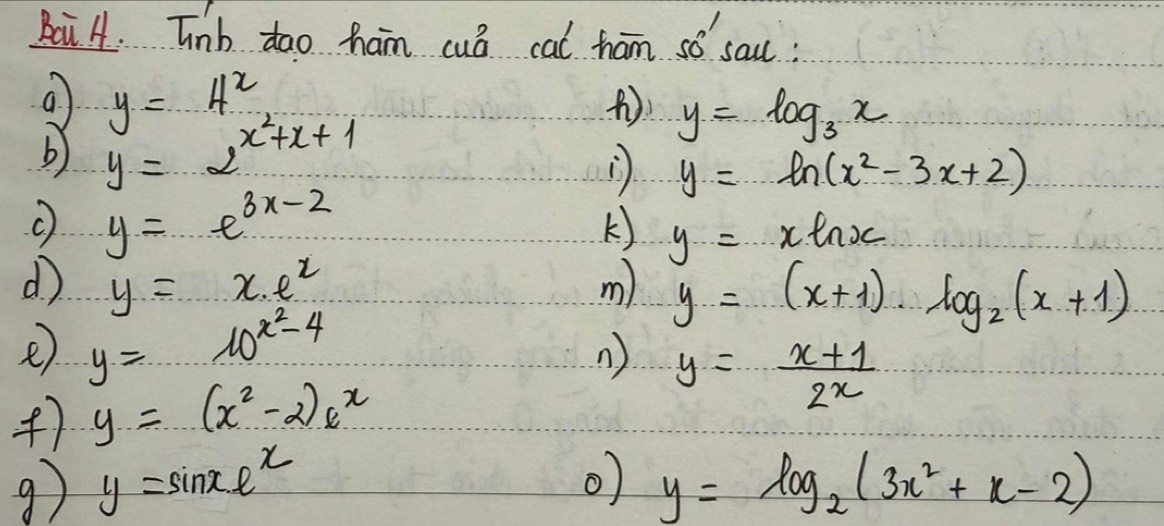 Bài 4. Tính đạo hàm của các hàm số sau:
a) y = 4^x
b) y = 2^{x²+x+1}
c) y = e^{3x-2}
d) y = x.e^x
e) y = 10^{x²-4}
f) y = (x²-2)e^x
g) y = sinx.e^x
h) y = log₃ x
i) y = ln(x² - 3x+2)
k) y = x lnx
m) y = (x+1). log₂(x+1)
n) y = \frac{x+1}{2x}
o) y = log₂(3x² + x - 2)